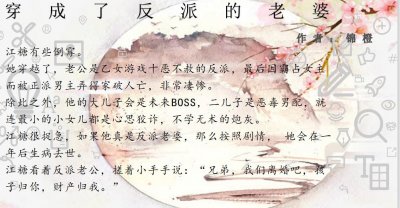 穿成了反派的老婆
作者：锦橙
江糖有些倒霉。
她穿越了，老公是乙女游戏十恶不赦的反派，最后因霸占女主
而被正派男主弄得家破人亡，非常凄惨。
除此之外，他的大儿子会是未来BOSS，二儿子是恶毒男配，就
连最小的小女儿都是心思狡诈，不学无术的炮灰。
江糖很捉急，如果他真是反派老婆，那么按照剧情， 她会在一
年后生病去世。
江糖看着反派老公，搓着小手手说：“兄弟，我们离婚吧，孩
子归你，财产归我。”